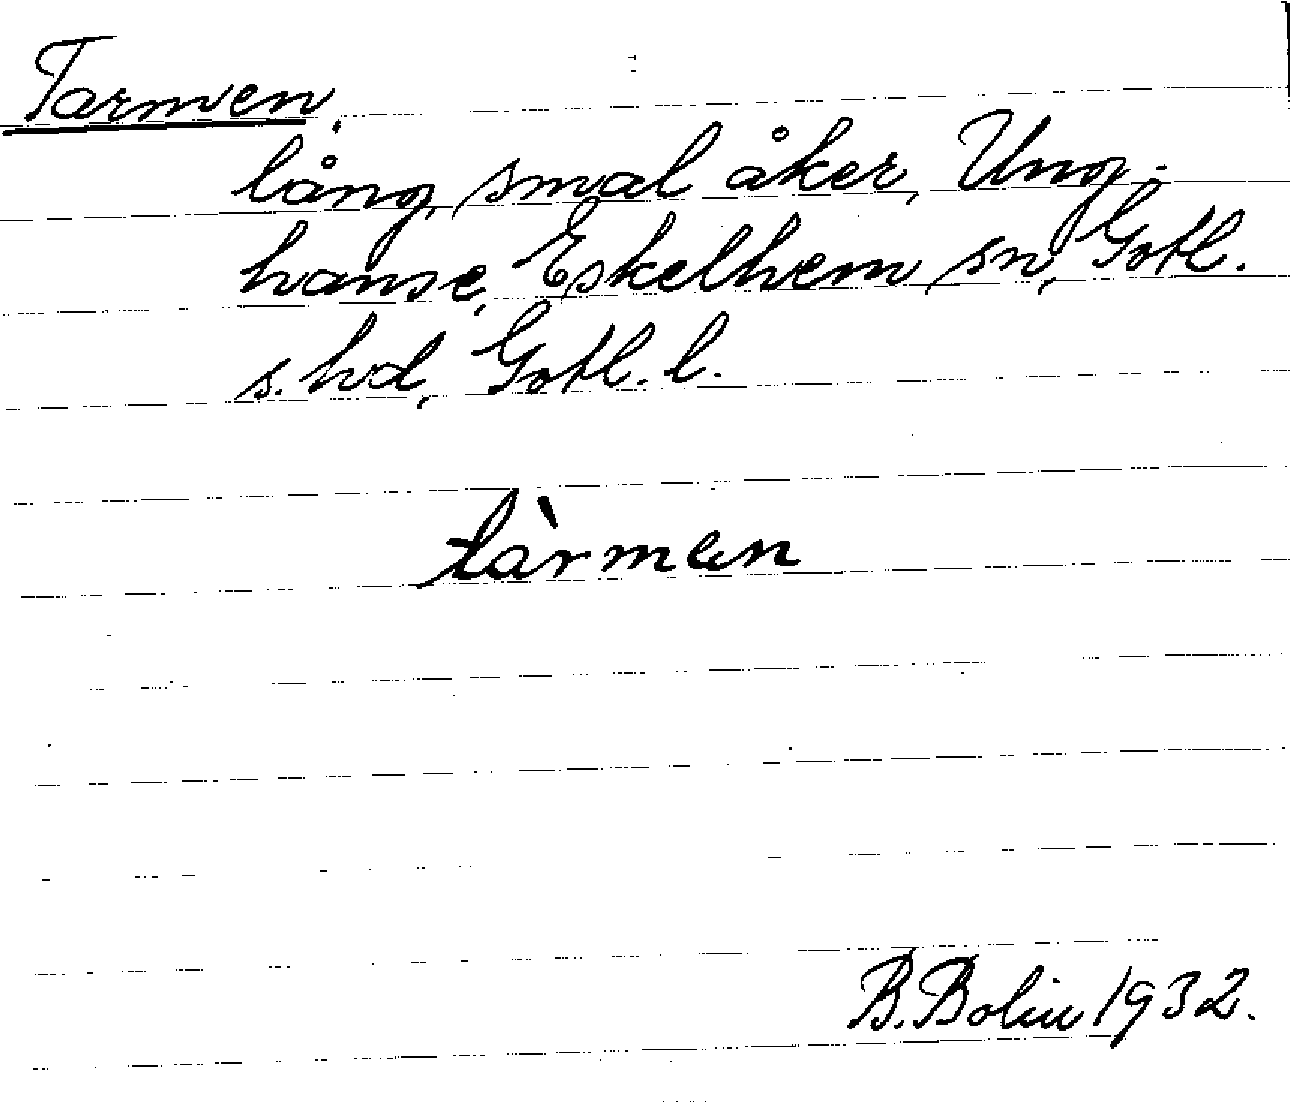 Tarmen,
lång, smal åker, Ung-
hanse, Eskelhem sn, Gotl.
s. hd, Gotl. l.
tàrmen
B. Bolin 1932.